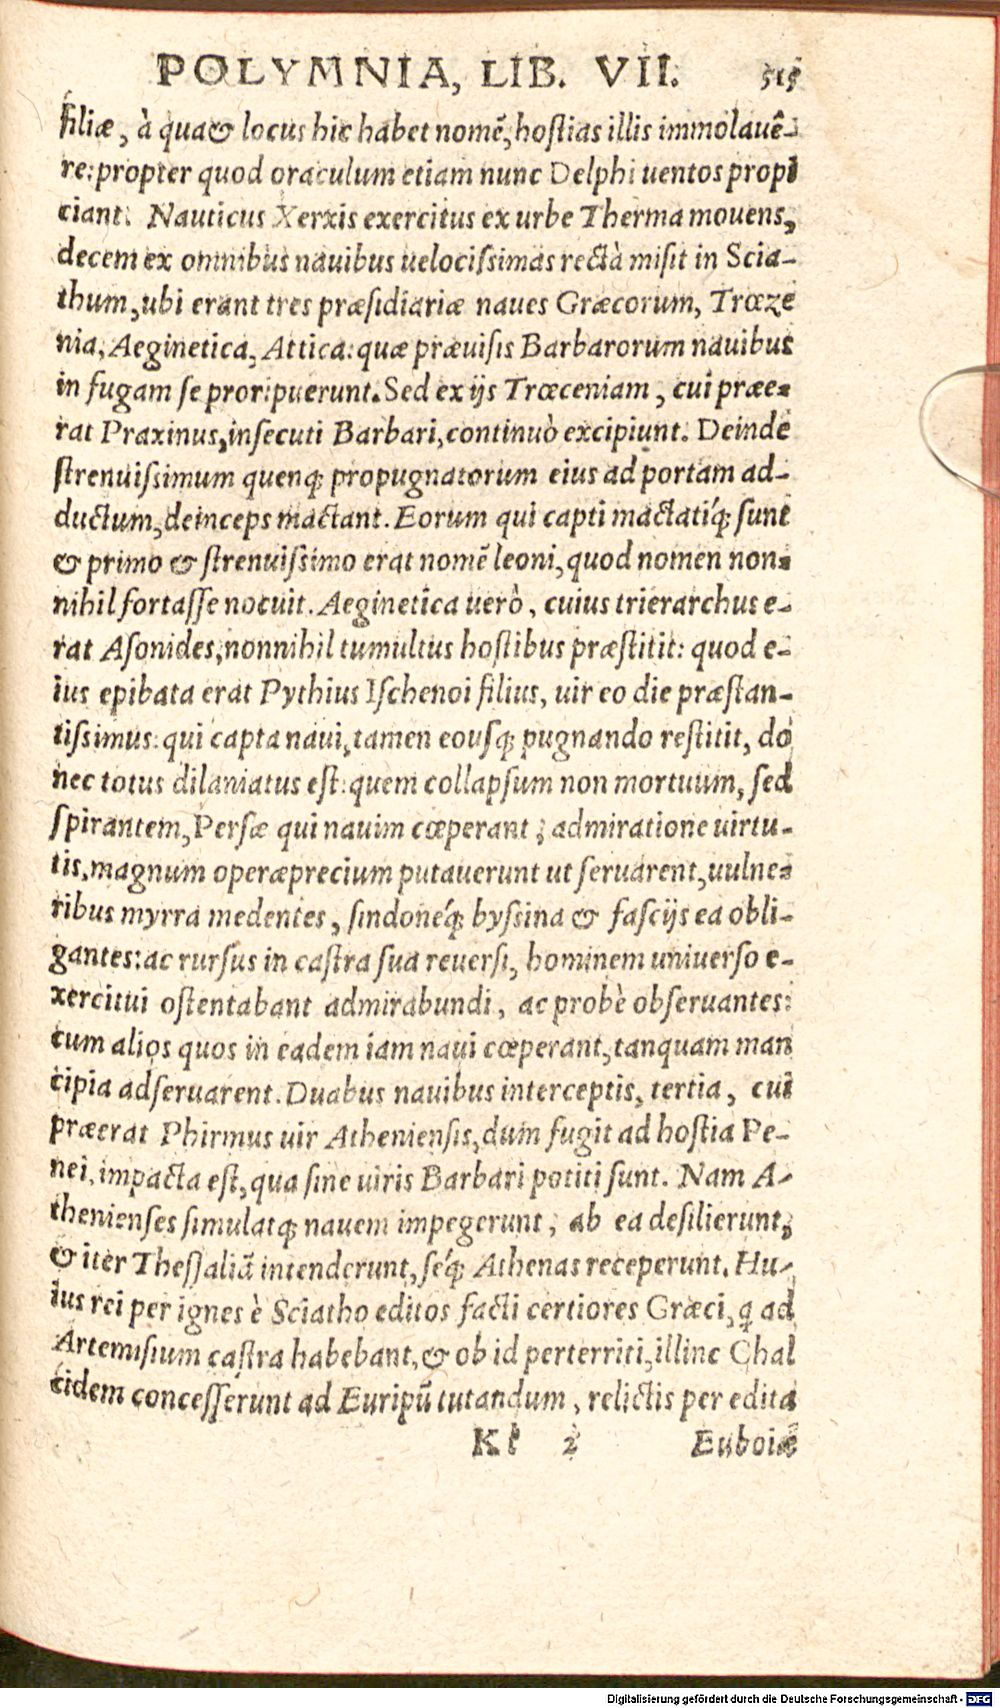 POLYMNIA, LIB. VII. 515
filiæ, à qua & locus hic habet nomẽ, hostias illis immolauê-
re: propter quod oraculum etiam nunc Delphi uentos propi
ciant. Nauticus Xerxis exercitus ex urbe Therma mouens,
decem ex omnibus nauibus uelocissimas rectà misit in Scia-
thum, ubi erant tres præsidiariæ naues Græcorum, Trœze
nia, Aeginetica, Attica: quæ præuisis Barbarorum nauibus
in fugam se proripuerunt. Sed ex ijs Trœceniam, cui præe-
rat Praxinus, insecuti Barbari, continuò excipiunt. Deinde
strenuissimum quenq; propugnatorum eius ad portam ad-
ductum, deinceps mactant. Eorum qui capti mactatiq́; sunt
& primo & strenuissimo erat nomẽ leoni, quod nomen non-
nihil fortasse nocuit. Aeginetica uerò, cuius trierarchus e-
rat Asonides, nonnihil tumultus hostibus præstitit: quod e-
ius epibata erat Pythius Ischenoi filius, uir eo die præstan-
tissimus: qui capta naui, tamen eousq; pugnando restitit, do
nec totus dilaniatus est: quem collapsum non mortuum, sed
spirantem, Persæ qui nauim cœperant, admiratione uirtu-
tis, magnum operæprecium putauerunt ut seruarent, uulne-
ribus myrra medentes, sindoneq́; byssina & fascijs ea obli-
gantes: ac rursus in castra sua reuersi, hominem uniuerso e-
xercitui ostentabant admirabundi, ac probè obseruantes:
cum alios quos in eadem iam naui cœperant, tanquam man
cipia adseruarent. Duabus nauibus interceptis, tertia, cui
præerat Phirmus uir Atheniensis, dum fugit ad hostia Pe-
nei, impacta est, qua sine uiris Barbari potiti sunt. Nam A-
thenienses simulatq; nauem impegerunt, ab ea desilierunt,
& iter Thessaliã intenderunt, seq́; Athenas receperunt. Hu-
ius rei per ignes è Sciatho editos facti certiores Græci, q ad
Artemisium castra habebant, & ob id perterriti, illinc Chal
cidem concesserunt ad Euripũ tutandum, relictis per edita
Kk 2 Euboiæ
Digitalisierung gefördert durch die Deutsche Forschungsgemeinschaft - DFG